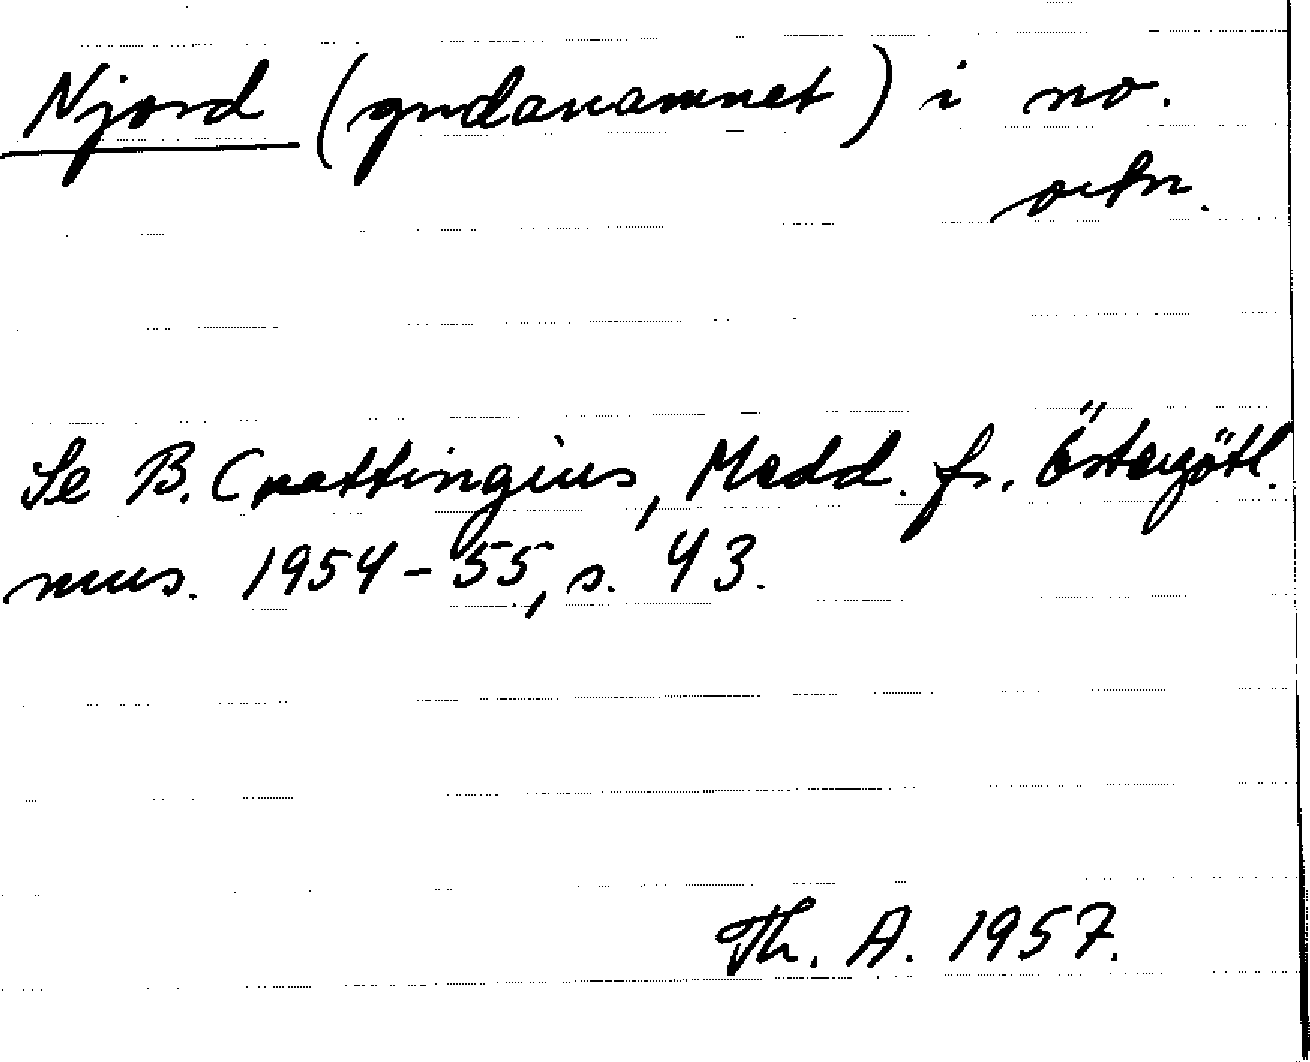 Njord (gudanamnet) i no.
ortn.
Se B. Cnattingius, Medd. fr. Östergötl.
mus. 1954-55, s. 43.
Th. A. 1957.